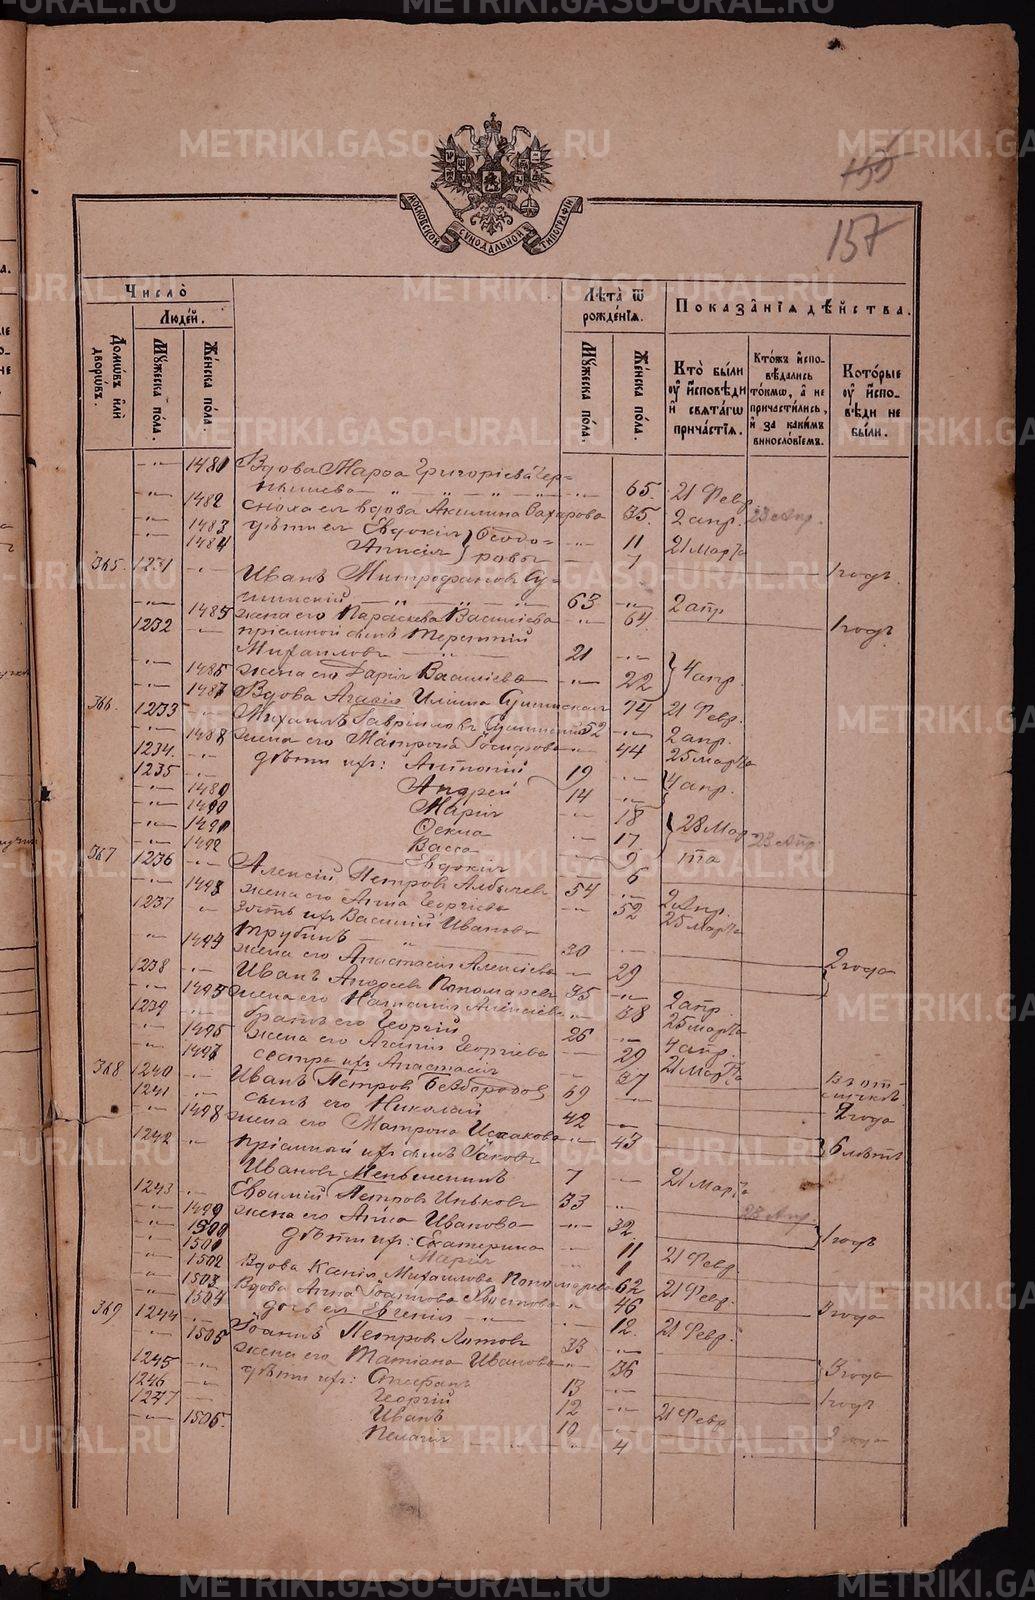 METRIKI.GASO-URAL.RU
155
157
МОСКОВСКОЙ СѴНОДАЛЬНОЙ ТИПОГРАФІИ
Число̀
Людей.
Домѡвъ и҆лѝ дворѡвъ.
Мꙋжеска пола.
Женска пола.
Лѣта̀ ѿ рожденїѧ.
Мꙋжеска пола.
Женска пола.
Показанїѧ дѣйства.
Кто̀ были оу҆ и҆сповѣди и҆ свѧтагѡ причастїѧ.
Ктожъ и҆сповѣдались токмѡ, а҆ не причастились, и҆ за какимъ винословїемъ.
Которые оу҆ и҆сповѣди не были.
1481 Вдова Марѳа Григоріева Чер-
нышева 65. 21 Февр.
1482 сноха ея вдова Акилина Захарова 35. 2 апр. 23 Апр.
1483 дѣти ея Евдокія 11 21 Марта
1484 Анисія } Ѳеодо-ровы 7 1 годъ.
365. 1231 Иванъ Митрофановъ Су-
шинскій 63 2 апр
1485 жена его Параскева Василіева 64. 1 годъ
1232 пріемной сынъ Терентій
Михаиловъ 21
1486 жена его Дарія Василіева 22 } 4 апр.
1487 Вдова Агаѳія Иліина Сушинская 74 21 Февр.
366. 1233 Михаилъ Гавріиловъ Сушинскій 52 2 апр.
1488 жена его Матрона 44 25 Марта
1234 дѣти ихъ: Антоній 19
1235 Андрей 14 } 4 апр.
1489 Марія 18
1490 Ѳекла 17 } 28 Мар- 23 Апр
1491 Васса 9 та
1492 Евдокія 6
367 1236 Алексій Петровъ 54 2 Апр.
1493 жена его Анна Георгіева 52 25 Марта
1237 зять ихъ Василій Ивановъ
Трубинъ 30
1494 жена его Анастасія Алексіева 29 } 2 года
1238 Иванъ Андреевъ Пономаревъ 35 2 апр.
1495 жена его Наталія Алексіева 38 25 марта
1239 братъ его Георгій 26 4 апр.
1496 жена его Агаѳія Георгіева 29 21 Марта
1497 сестра ихъ Анастасія 37 В отлучкѣ
368 1240 Иванъ Петровъ Безбородовъ 69
1241 сынъ его Николай 42 2 года
1498 жена его Матрона Исаакова 43 } 6 лѣтъ
1242 пріемный ихъ сынъ Іаковъ
Ивановъ Меньшенинъ 7 21 Марта
1243 Евѳимій Петровъ Иньковъ 33 23 Апр.
1499 жена его Анна Иванова 32 } 1 годъ
1500 дѣти ихъ: Екатерина 11 21 Февр.
1501 Марія 1
1502 Вдова Ксенія Михаилова Пономарева 62 21 Февр.
1503 Вдова Анна 46 3 года
1504 дочь ея Евгенія 12. 21 Февр.
369 1244 Іоаннъ Петровъ 33
1505 жена его Татіана Иванова 36 } 3 года
1245 дѣти ихъ: Стефанъ 13 1 годъ
1246 Георгій 12 21 Февр
1247 Иванъ 10 3 года
1506. Пелагія 4